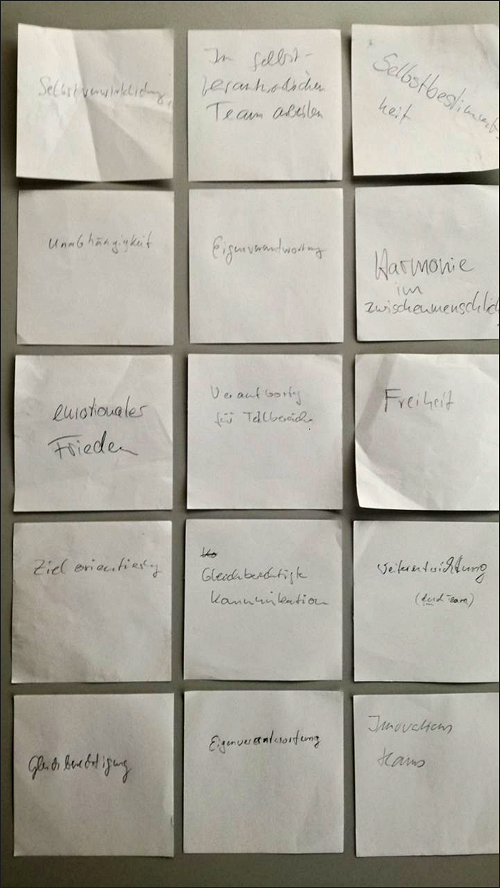 Selbstverwirklichung
Im selbst-
verantwortlichen
Team arbeiten
Selbstbestimmt
heit
Unabhängigkeit
Eigenverantwortung
Harmonie
im
zwischenmenschlic
emotionaler
Frieden
Verantwortg
für Teilbereiche
Freiheit
Zielorientierg
Gleichberechtigte
Kommunikation
Weiterentwicklung
(durch Team)
Gleichberechtigung
Eigenverantwortung
Innovations
teams